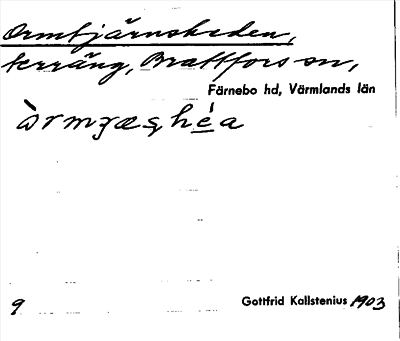 Ormtjärnsheden,
terräng, Brattfors sn,
Färnebo hd, Värmlands län
òrmʒæșhé̱a
9
Gottfrid Kallstenius 1903